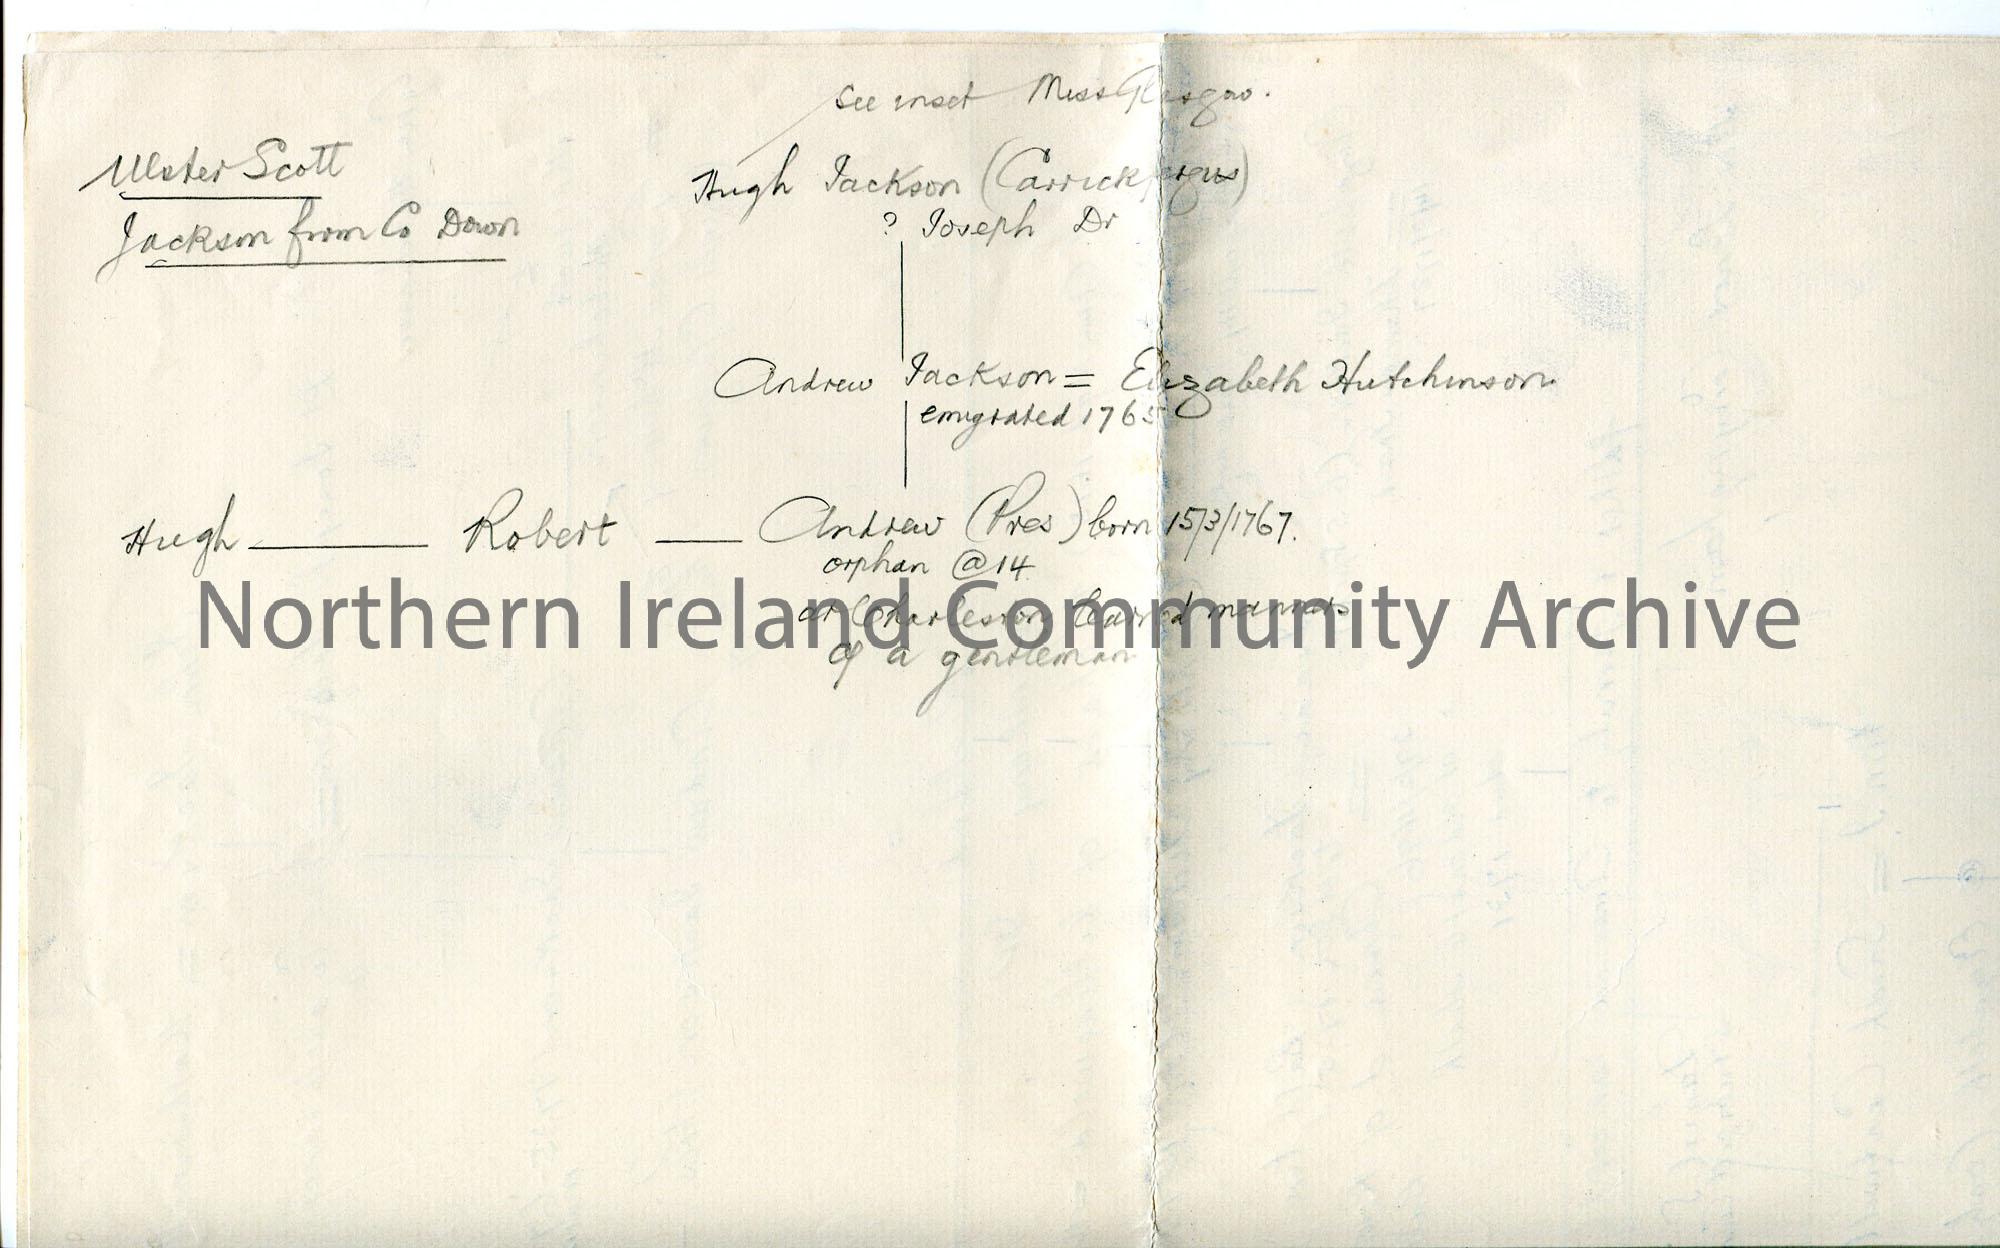 See inset Miss Glasgow.
Ulster Scott
Jackson from Co Down
Hugh Jackson (Carrickfergus)
? Joseph Dr
Andrew Jackson = Elizabeth Hutchinson.
emigrated 1765
Hugh — Robert — Andrew (Pres) born 15/3/1767.
orphan @ 14
at Charleston learned manners
of a gentleman
Northern Ireland Community Archive